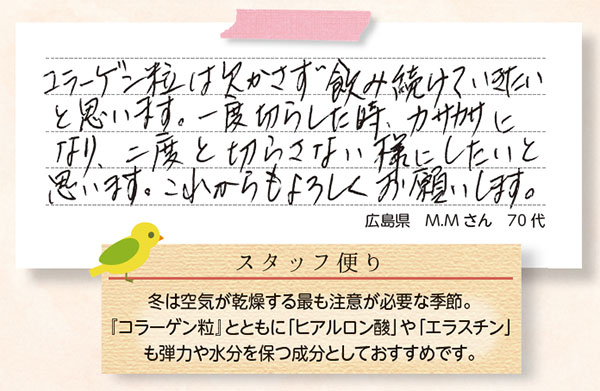 コラーゲン粒は欠かさず飲み続けていきたい
と思います。一度切らした時、カサカサに
なり、二度と切らさない様にしたいと
思います。これからもよろしくお願いします。
広島県 M.Mさん 70代
スタッフ便り
冬は空気が乾燥する最も注意が必要な季節。
『コラーゲン粒』とともに「ヒアルロン酸」や「エラスチン」
も弾力や水分を保つ成分としておすすめです。